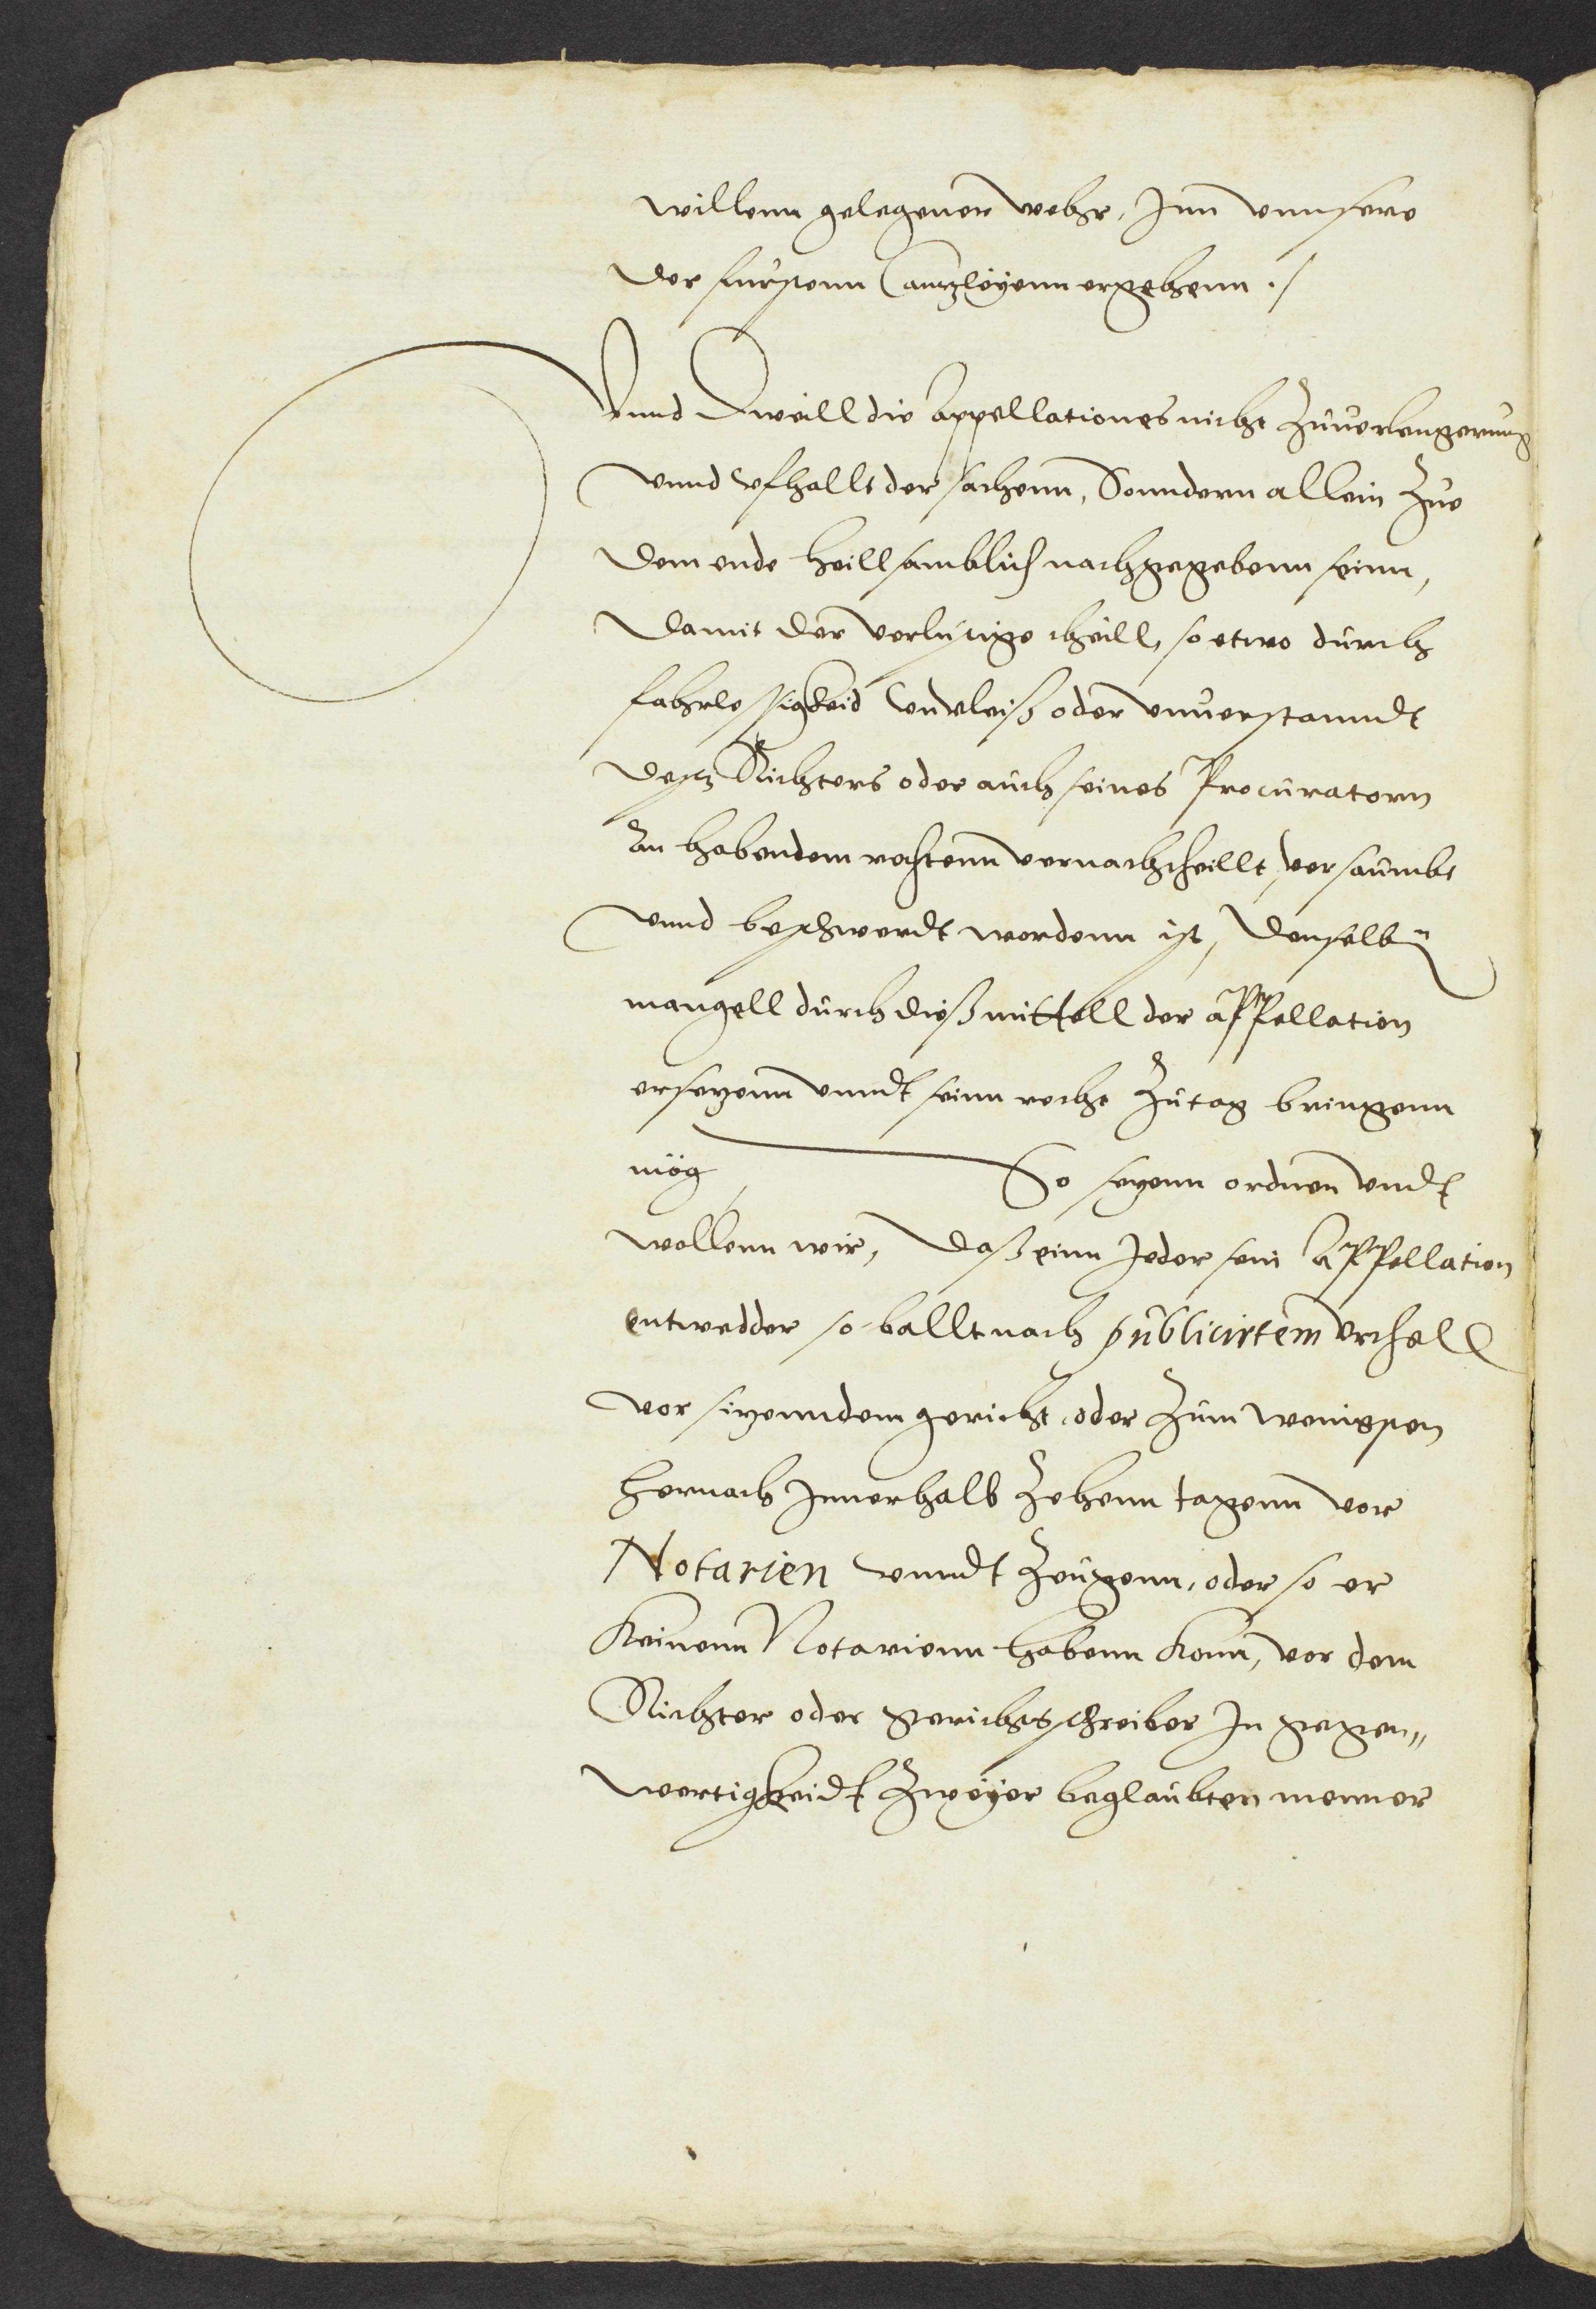 willenn gelegener wehr, Inn vnnsere
der furstenn Canntzleyenn ergehenn ./
Vnnd Dweill die Appellationes nicht Zuuerlengerung
vnnd vfhallt der sachenn, Sonndern allein Zue
dem ende heillsamblich nachgegebenn seinn,
Damit der verlustige theill, so etwo durch
fahrlessigkeid vnvleiß oder vnuerstanndt
desz Richters oder auch seines Procuratorn
An habendem rechtenn vernachtheillt, versaumbt
vnnd beschwerdt wordenn ist, Denselbn
mangell durch dieß mittell der appellation
ersetzenn vnndt seinn recht Zutag bringenn
mög, So setzenn ordnen vndt
wollenn wir, Daß einn Jeder sein Appellation
entwedder so ballt nach publicirtem vrthell
vor sitzenndem gericht, oder Zum wenigsten
hernach Innerhalb Zehenn tagenn vor
Notarien vnndt Zeugenn, oder so er
Keinenn Notarienn habenn Konn, vor dem
Richter oder gerichtsschreiber In gegen„
wertigkeidt Zweyer beglaubten menner